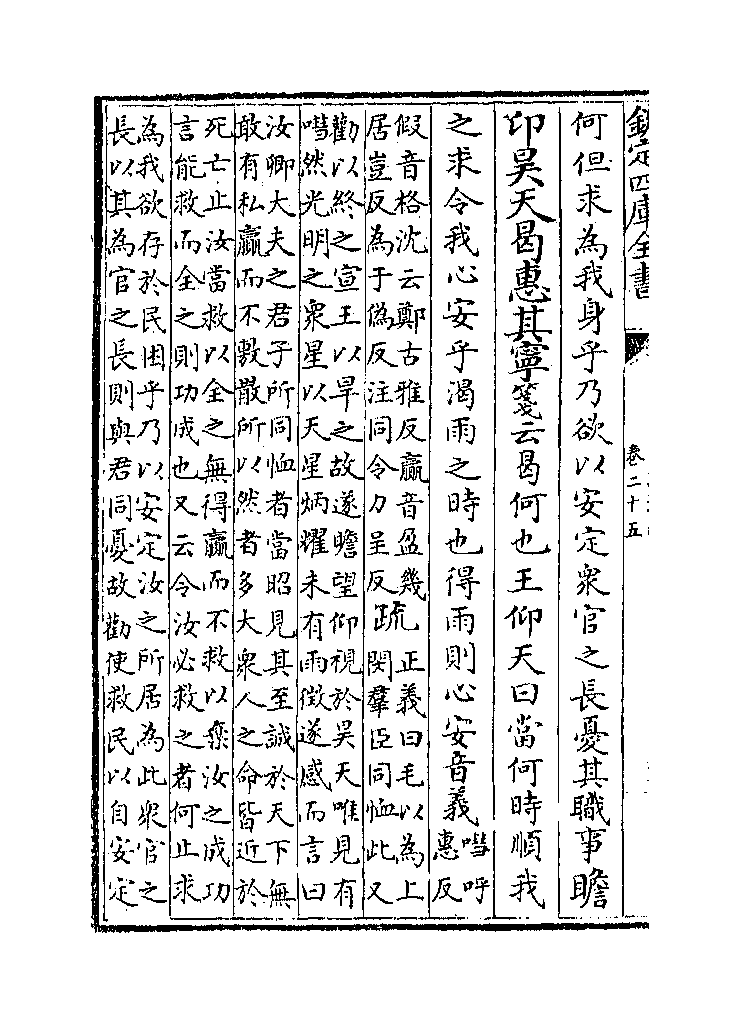 欽定四庫全書
卷二十五
何但求為我身乎乃欲以安定衆官之長憂其職事瞻
卬昊天曷惠其寧箋云曷何也王仰天曰當何時順我
之求令我心安乎渴雨之時也得雨則心安音義嘒呼
惠反
假音格沈云鄭古雅反贏音盈幾
居豈反為于偽反注同令力呈反疏正義曰毛以為上
閔羣臣同恤此又
勸以終之宣王以旱之故遂瞻望仰視於昊天唯見有
嘒然光明之衆星以天星炳耀未有雨徴遂感而言曰
汝卿大夫之君子所同恤者當昭見其至誠於天下無
敢有私贏而不敷散所以然者多大衆人之命皆近於
死亡止汝當救以全之無得贏而不救以棄汝之成功
言能救而全之則功成也又云令汝必救之者何止求
為我欲存於民困乎乃以安定汝之所居為此衆官之
長以其為官之長則與君同憂故勸使救民以自安定